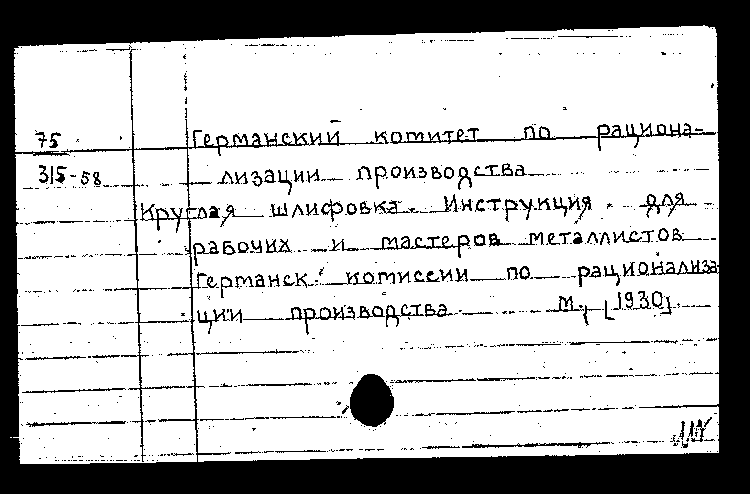 75
315-58
Германский комитет по рациона-
лизации производства
Круглая шлифовка. Инструкция для
рабочих и мастеров металлистов
Германск. комиссии по рационализа
ции производства М., [1930].